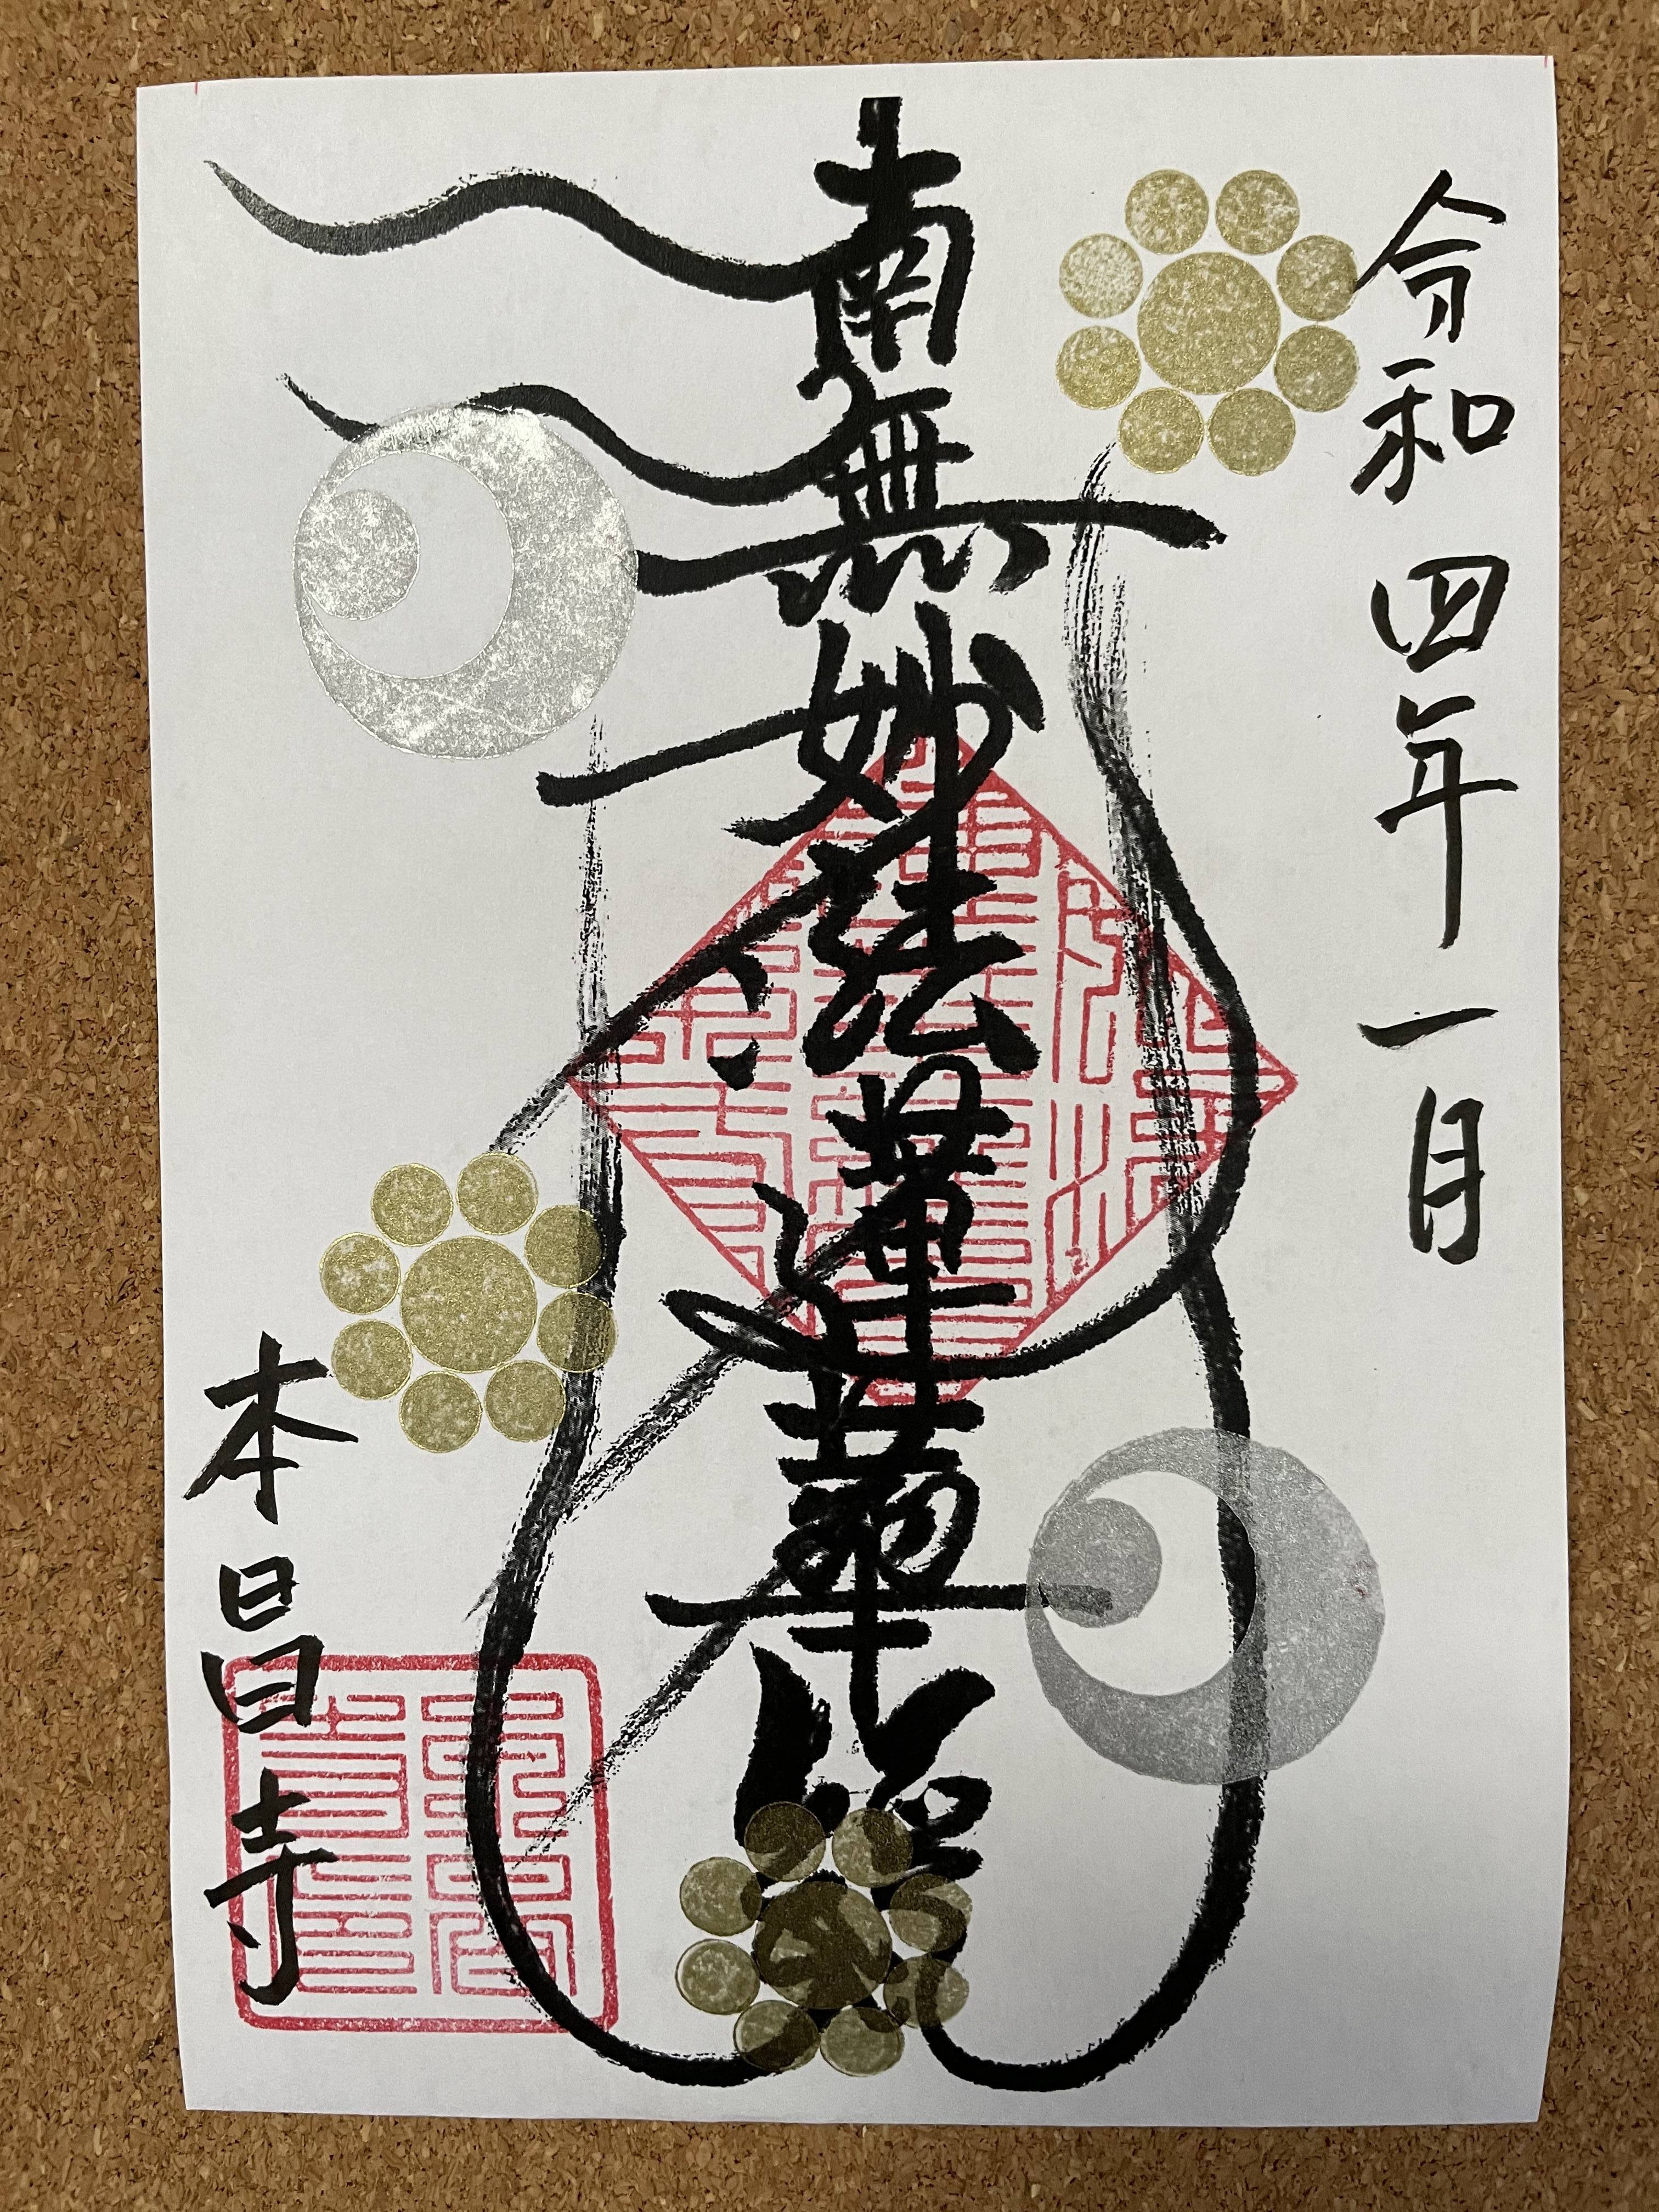 令和四年一月
南無妙法蓮華経
本昌寺